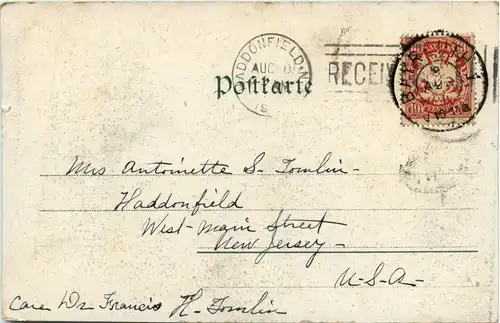 HADDONFIELD, N.
AUG
RECEI
Postkarte
10
AUG
Mrs Antoinette S. Tomlin-
Haddonfield
West-Main Street
New Jersey-
U-S-A-
Care Dr Francis H. Tomlin